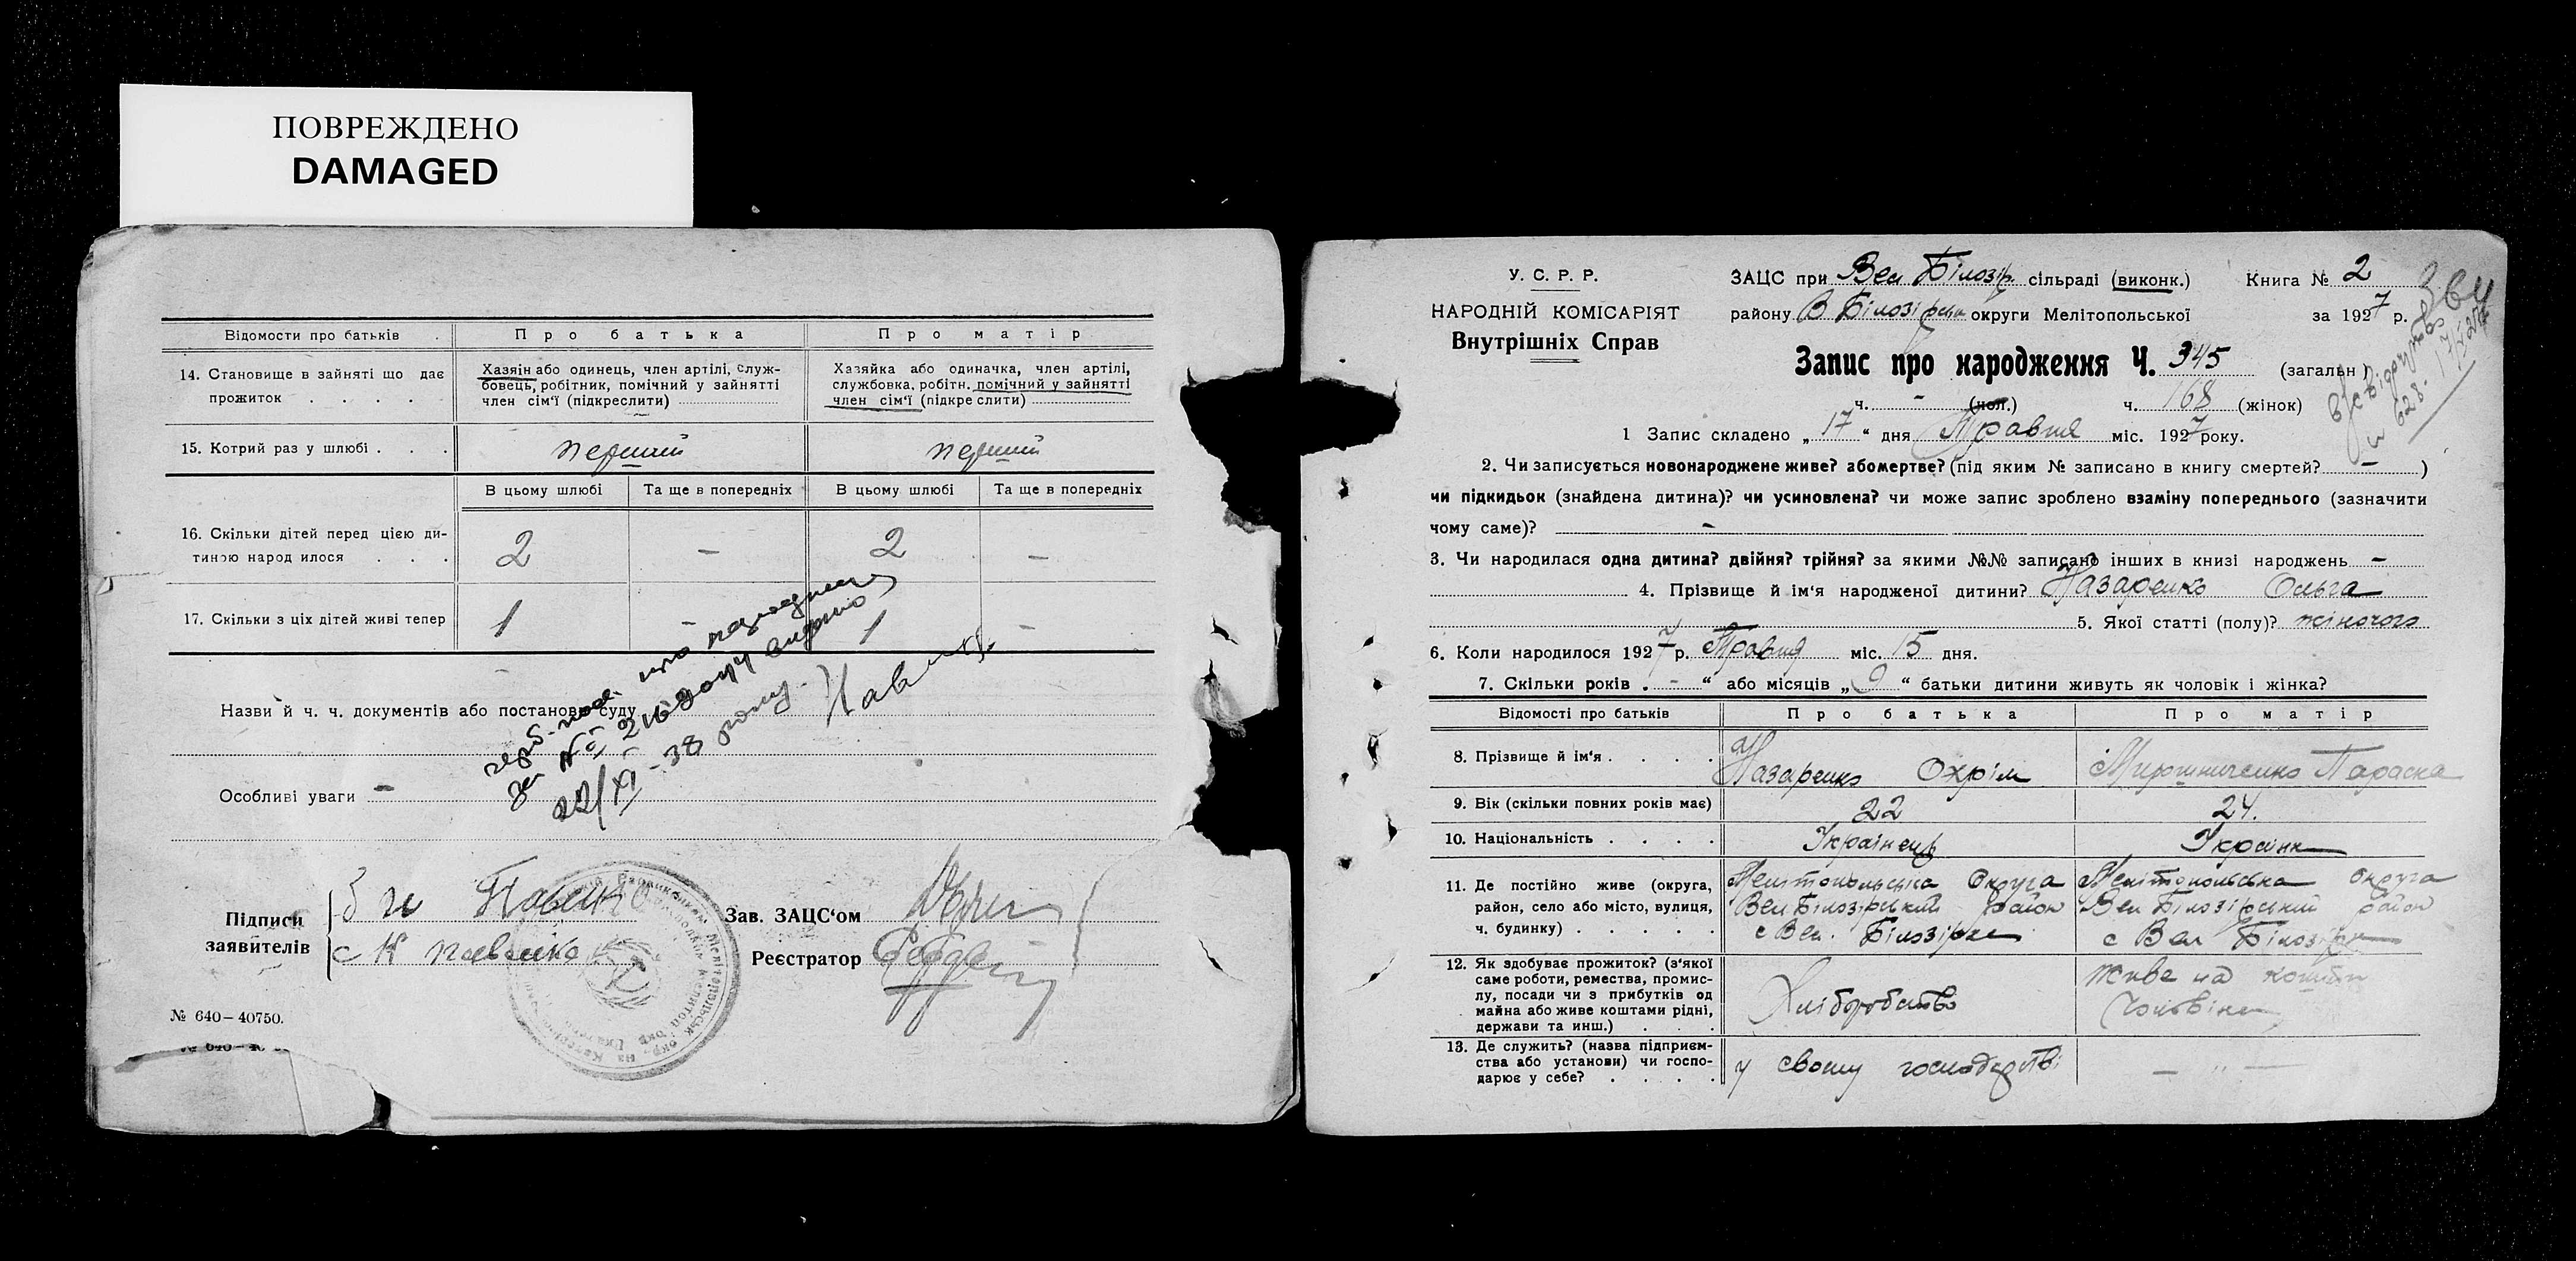 ПОВРЕЖДЕНО
DAMAGED
Відомости про батьків . Про батька Про матір
14. Становище в зайняті що дає прожиток . . . .
Хазяін або одинець, член артілі, служ-
бовець, робітник, помічний у зайнятті
член сім'ї (підкреслити)
Хазяйка або одиначка, член артілі,
службовка, робітн. помічний у зайнятті
член сім'ї (підкре слити)
15. Котрий раз у шлюбі . . . перший перший
В цьому шлюбі Та ще в попередніх В цьому шлюбі Та ще в попередніх
16. Скільки дітей перед цією ди-
тиною народ илося . . . 2 - 2 -
17. Скільки з ціх дітей живі тепер 1 - 1 -
Назви й ч. ч. документів або постанов суду
про народження
за №
22/XI-38 року.
Особливі уваги -
Підписи
заявителів
Зав. ЗАЦС'ом
Реєстратор
№ 640—40750.
У. С. Р. Р.
НАРОДНІЙ КОМІСАРІЯТ
Внутрішніх Справ
ЗАЦС при Вел Білозір. сільраді (виконк.) Книга № 2
району В Білозірськ округи Мелітопольської за 1927 р.
Запис про народження Ч. 345 (загальн)
ч. - (чол.) ч. 168 (жінок)
1 Запис складено „17" дня Травня міс. 1927 року.
2. Чи записується новонароджене живе? абомертве? (під яким № записано в книгу смертей? - )
чи підкидьок (знайдена дитина)? чи усиновлена? чи може запис зроблено взаміну попереднього (зазначити
чому саме)? -
3. Чи народилася одна дитина? двійня? трійня? за якими №№ записано інших в книзі народжень -
4. Прізвище й ім'я народженої дитини? Назаренко Ольга
5. Якої статті (полу)? жіночого
6. Коли народилося 1927 р. Травня міс. 15 дня.
7. Скільки років „ - " або місяців „ 9 " батьки дитини живуть як чоловік і жінка?
Відомості про батьків Про батька Про матір
8. Прізвище й ім'я . . . . Назаренко Охрім Мирошниченко Параска
9. Вік (скільки повних років має) 22 24.
10. Національність . . . . Українець Українк
11. Де постійно живе (округа,
район, село або місто, вулиця,
ч. будинку) . . . . .
Мелітопольська Округа
Вел Білозірський район
с Вел. Білозірке
Мелітопольська округа
Вел Білозірський район
с Вел Білозірк
12. Як здобуває прожиток? (з'якої
саме роботи, ремества, промис-
лу, посади чи з прибутків од
майна або живе коштами рідні,
держави та инш.) . . .
Хліборобство
живе на кошти
13. Де служить? (назва підприєм-
ства або установи) чи госпо-
дарює у себе? . . . .
у свому господарстві
— " —